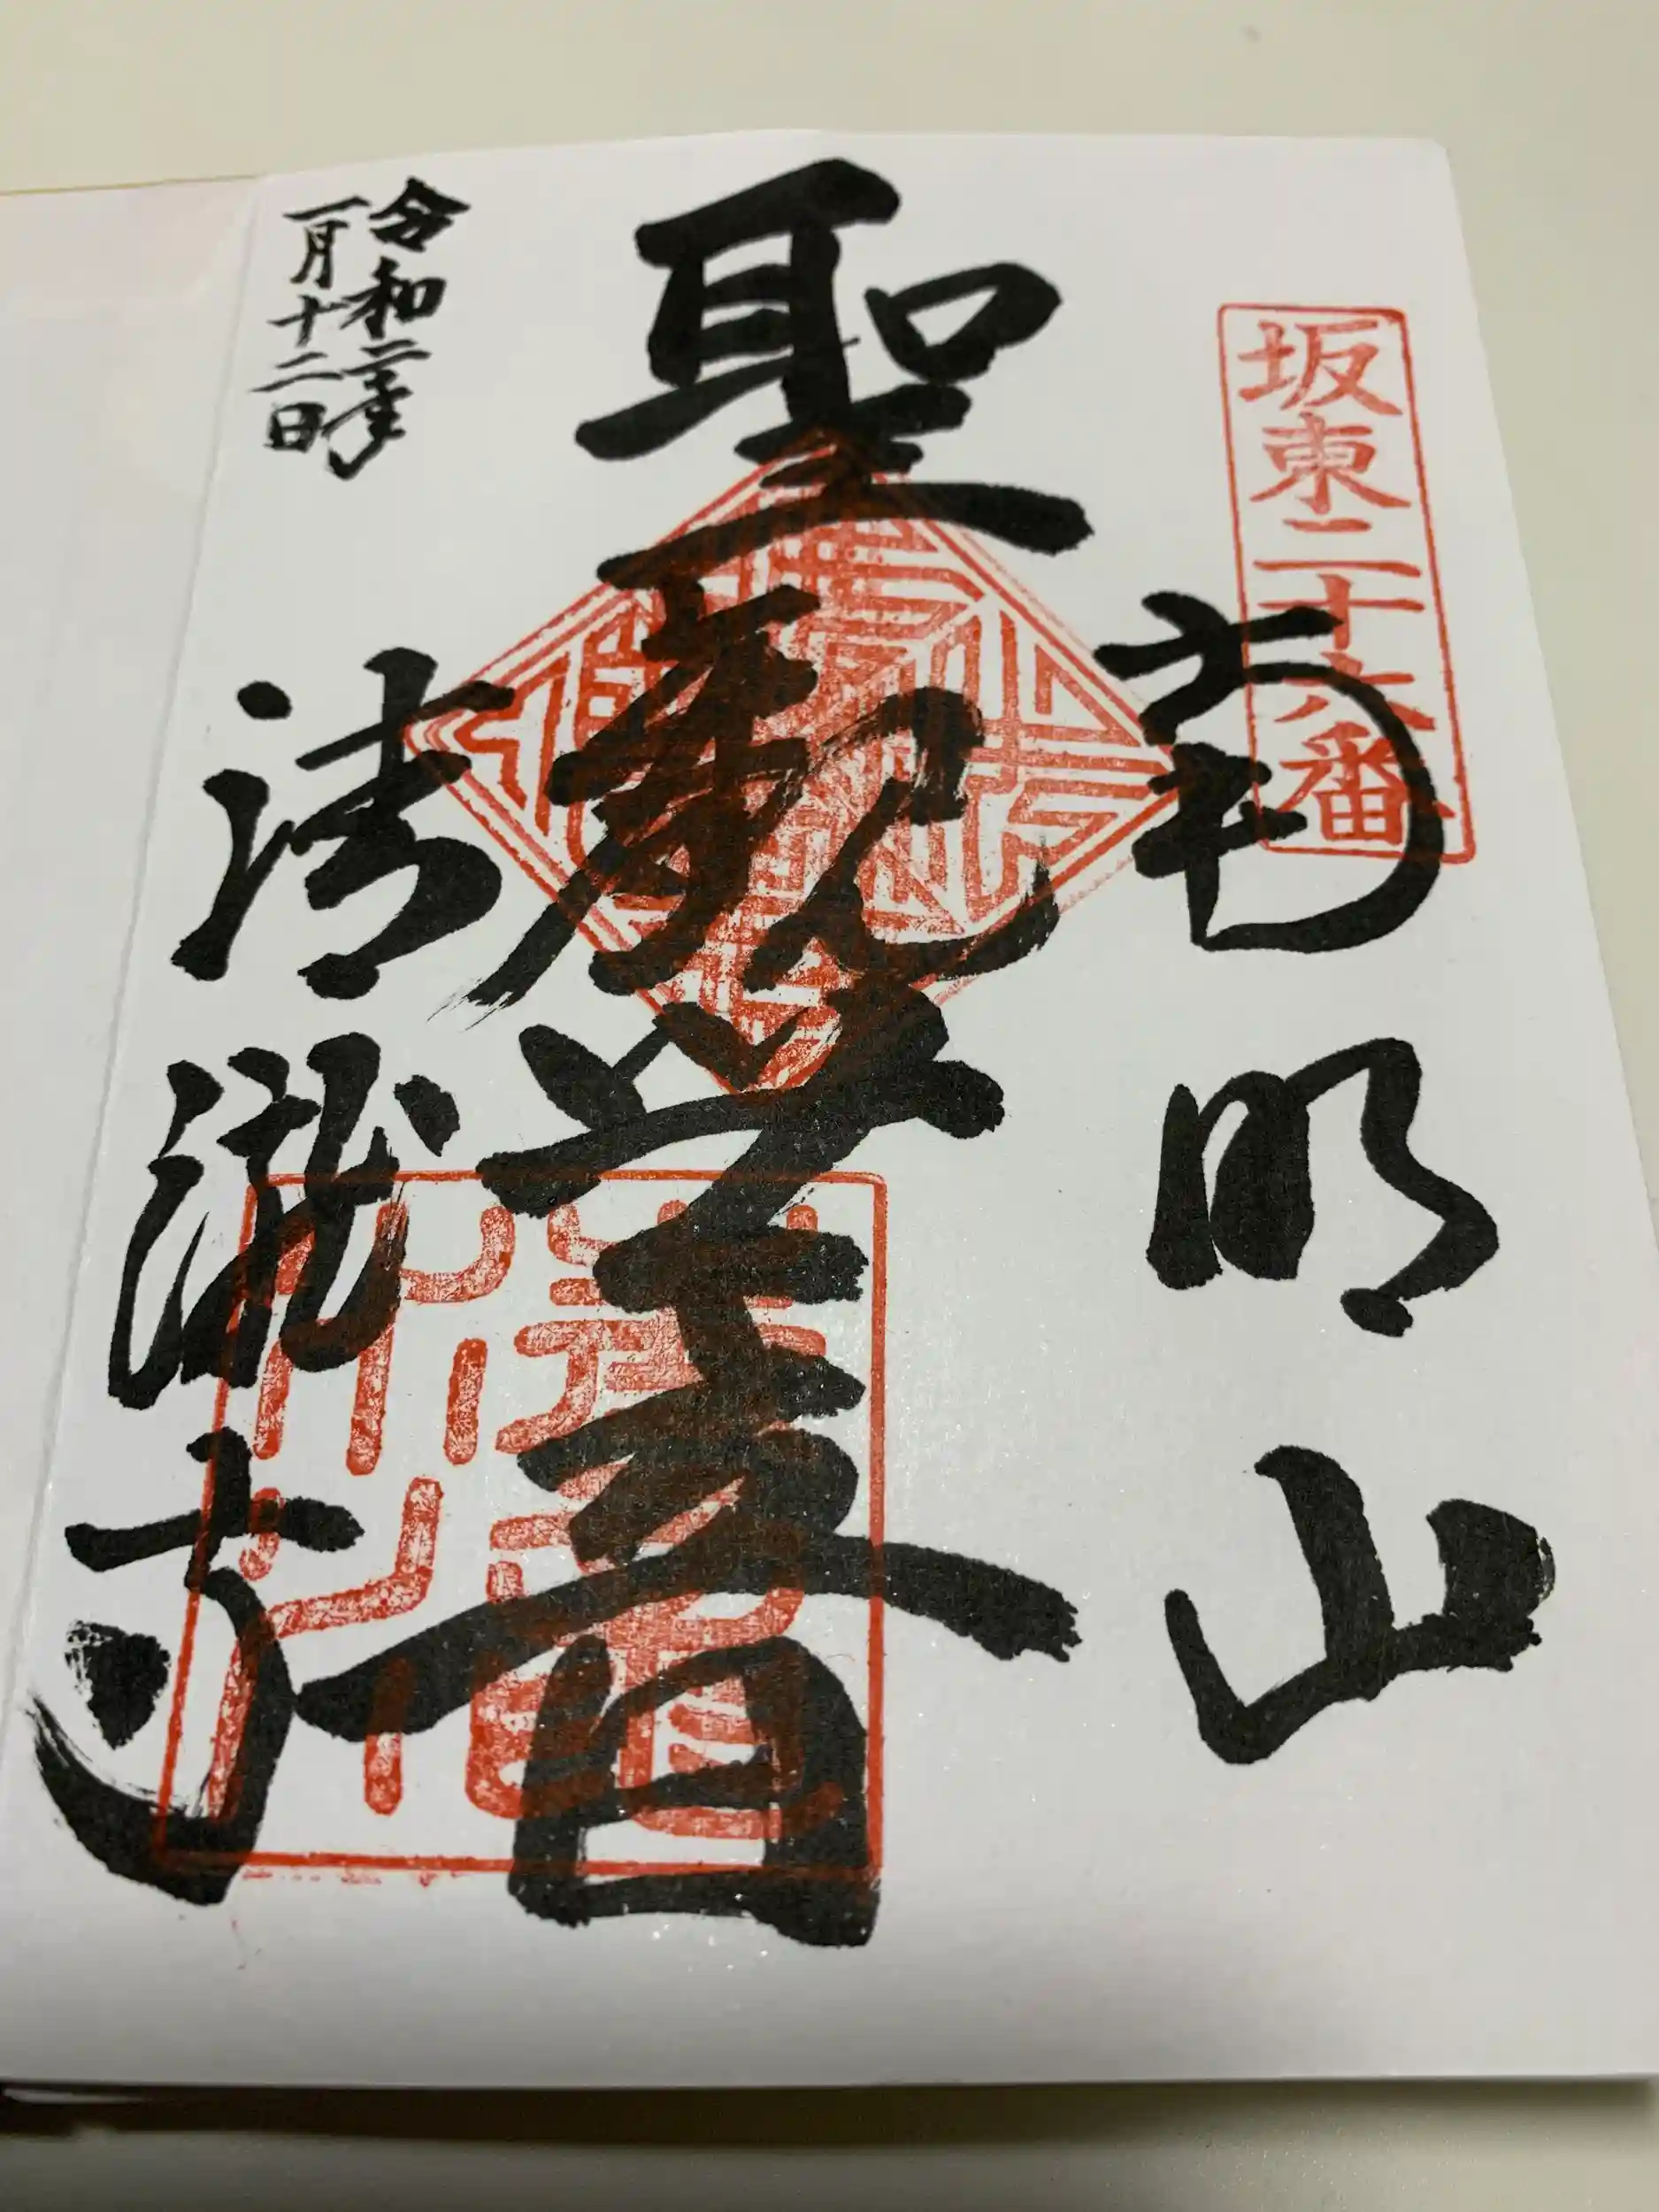 坂東二十六番
南明山
聖観世音
清瀧寺
令和二年
一月十二日